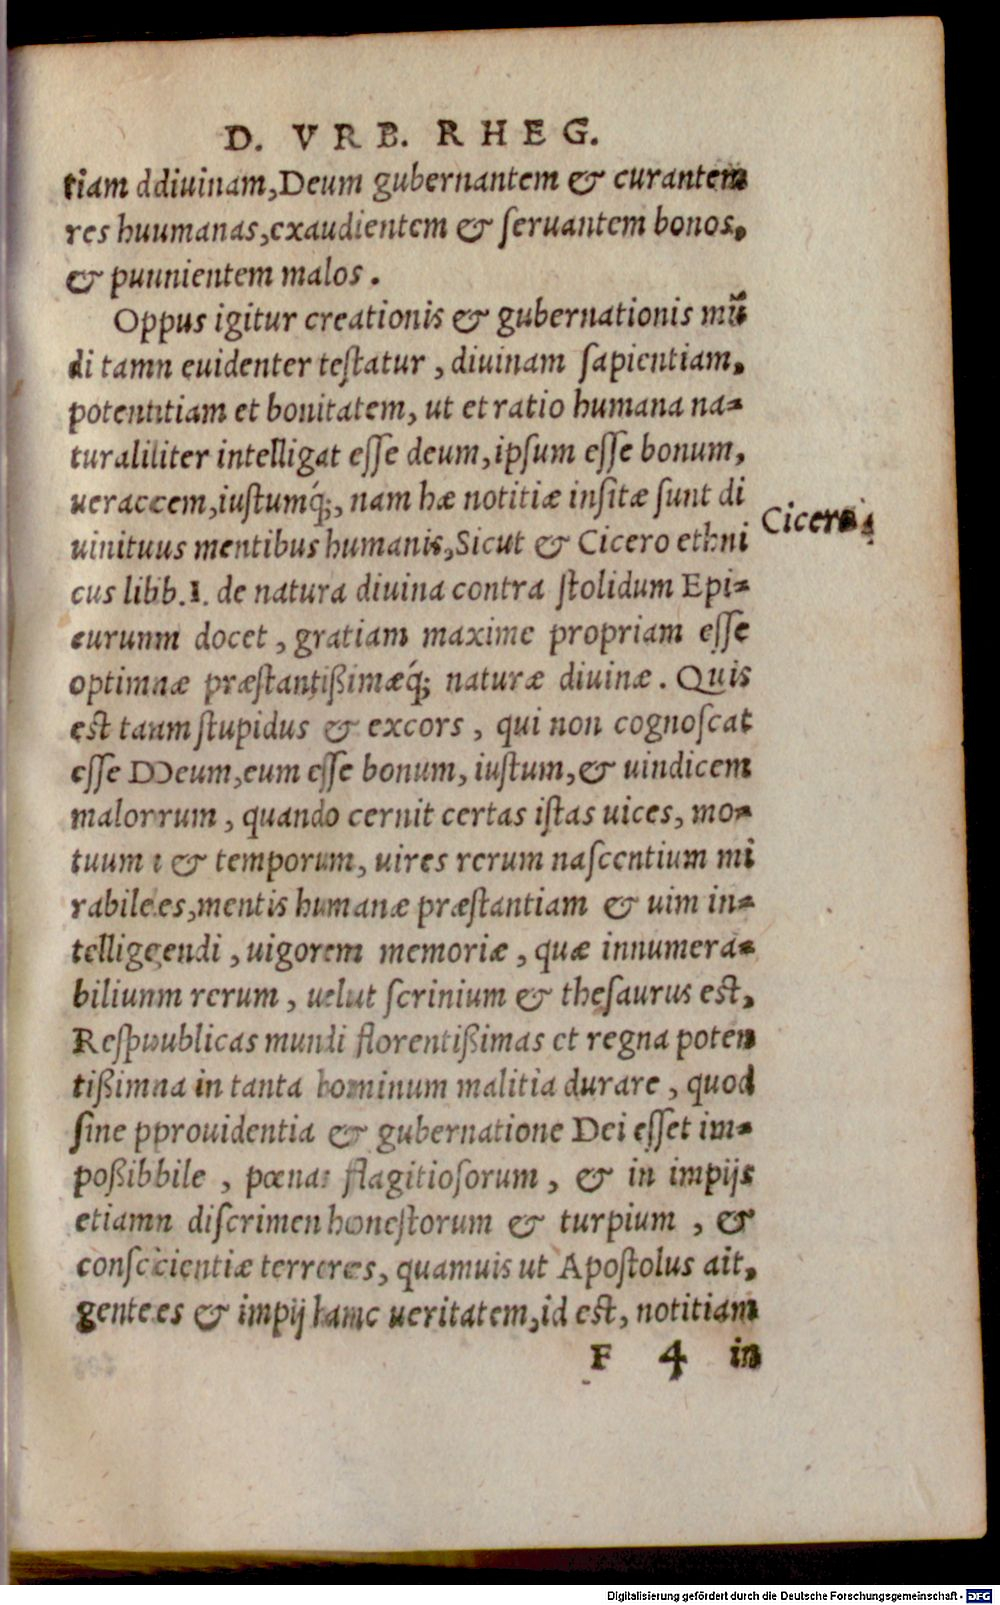 D. VRB. RHEG.
tiam ddiuinam, Deum gubernantem & curantem
res huumanas, exaudientem & seruantem bonos,
& puunientem malos.
Oppus igitur creationis & gubernationis mū
di tamn euidenter testatur, diuinam sapientiam,
potentitiam et bonitatem, ut et ratio humana na=
turaliliter intelligat esse deum, ipsum esse bonum,
ueraccem, iustumq́;, nam hæ notitiæ insitæ sunt di
uinituus mentibus humanis, Sicut & Cicero ethni
Cicero
cus libb. I. de natura diuina contra stolidum Epi=
curunm docet, gratiam maxime propriam esse
optimnæ præstantißimæq́; naturæ diuinæ. Quis
est tanm stupidus & excors, qui non cognoscat
esse DDeum, eum esse bonum, iustum, & uindicem
malorrum, quando cernit certas istas uices, mo=
tuum ı & temporum, uires rerum nascentium mi
rabilees, mentis humanæ præstantiam & uim in=
telliggendi, uigorem memoriæ, quæ innumera=
biliunm rerum, uelut scrinium & thesaurus est,
Respuublicas mundi florentißimas et regna poten
tißimna in tanta hominum malitia durare, quod
sine pprouidentia & gubernatione Dei esset im=
poßibbile, pœnas flagitiosorum, & in impijs
etiamn discrimen honestorum & turpium, &
conscicientiæ terrores, quamuis ut Apostolus ait,
gentees & impij hanc ueritatem, id est, notitiam
F 4 in
Digitalisierung gefördert durch die Deutsche Forschungsgemeinschaft - DFG